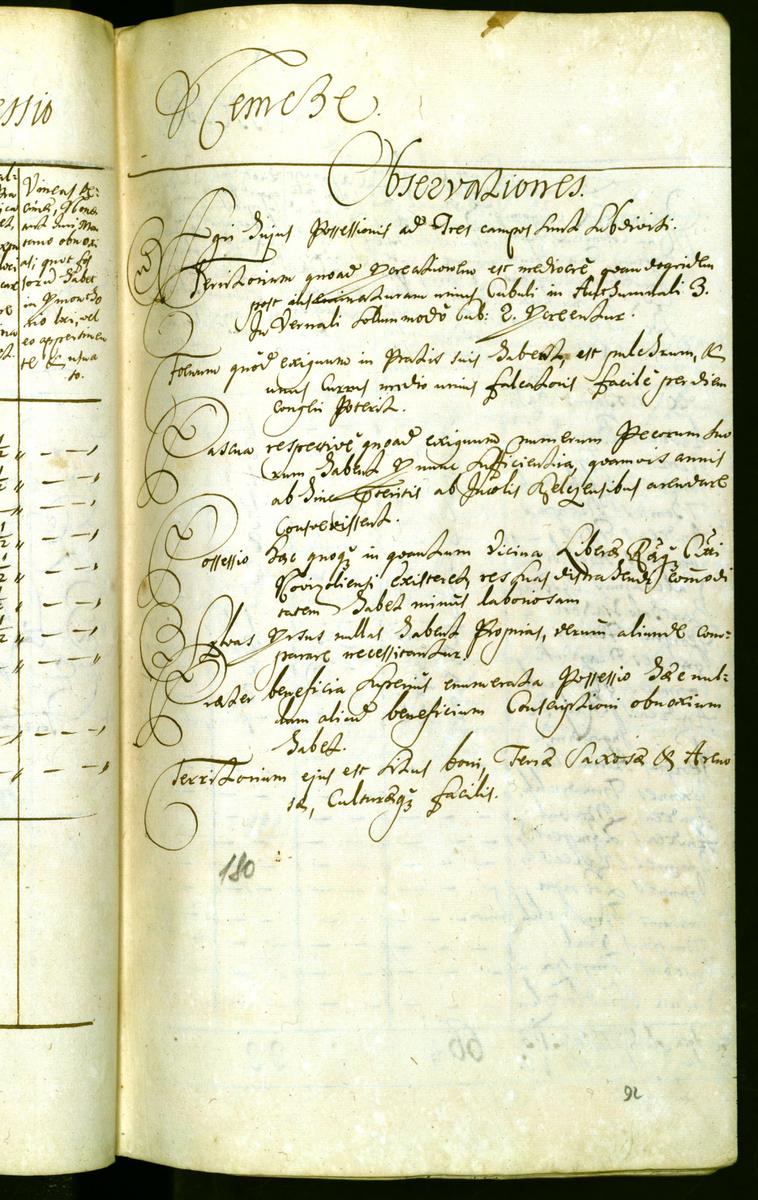 essio
Nemcze.
Observationes.
Agri hujus Possessionis ad Tres campos sunt subdivisi.
Territorium quoad procreationem est mediocre quandoquidem
post inseminaturam unius Cubuli in Authumnali 3.
In Vernali solummodo Cub: 2. procreentur.
Foenum quod exiguum in Pratis suis habent, est pulchrum, &
unus Currus medio unius falcatoris facile per diem
congli Poterit.
Pascua respective quoad exiguum numerum Pecorum suo
rum habent pro nunc sufficientia, quamvis annis
ab hinc ab Incolis arendare
consvevissent.
Possessio haec quoqz in quantum Vicina Liberae Regz Ctti
Novizoliensi existeret, res suas distrahendi commodi
tatem habet minus laboriosam
Sylvas prorsus nullas habent Proprias, verum aliunde com-
parare necessitantur.
Praeter beneficia superius enumerata Possessio haec nul-
lum aliud beneficium Conscriptioni obnoxium
habet.
Territorium ejus est situs boni, Terrae Saxosae & Areno
sae, Culturaeqz facilis.
180
92